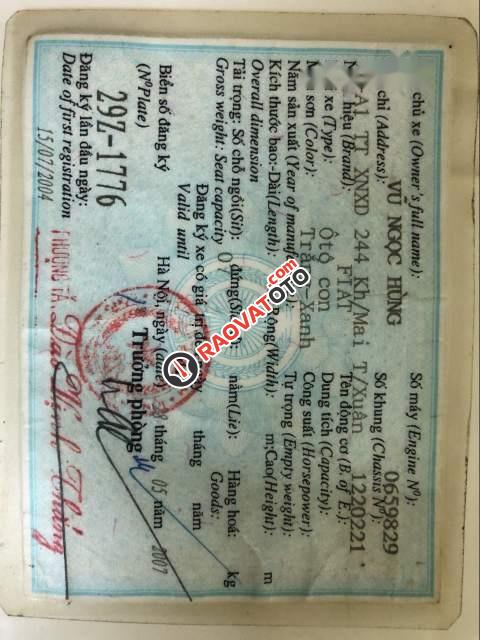 chủ xe (Owner's full name): Số máy (Engine Nº):
VŨ NGỌC HÙNG 0659829
chỉ (Address): Số khung (Chassis Nº):
A1 TT XNXD 244 Kh/Mai T/Xuân 1220221
hiệu (Brand): FIAT Tên động cơ (B. of E.):
xe (Type): Ôtô con Dung tích (Capacity):
sơn (Color): Trắng-Xanh Công suất (Horsepower):
Năm sản xuất (Year of manuf Tự trọng (Empty weight):
Kích thước bao:-Dài(Length): Rộng(Width): m,Cao(Height): m
Overall dimension
Tải trọng: Số chỗ ngồi(Sit): 07 đứng( nằm(Lie): Hàng hoá: kg
Gross weight: Seat capacity Goods:
Đăng ký xe có giá trị tháng năm
Valid until
Biển số đăng ký Hà Nội, ngày tháng 05 năm 2007
(NºPlate) Trưởng phòng
29Z-1776
Đăng ký lần đầu ngày:
Date of first registration
15/07/2004
THƯỢNG TÁ
RAOVATOTO
.COM